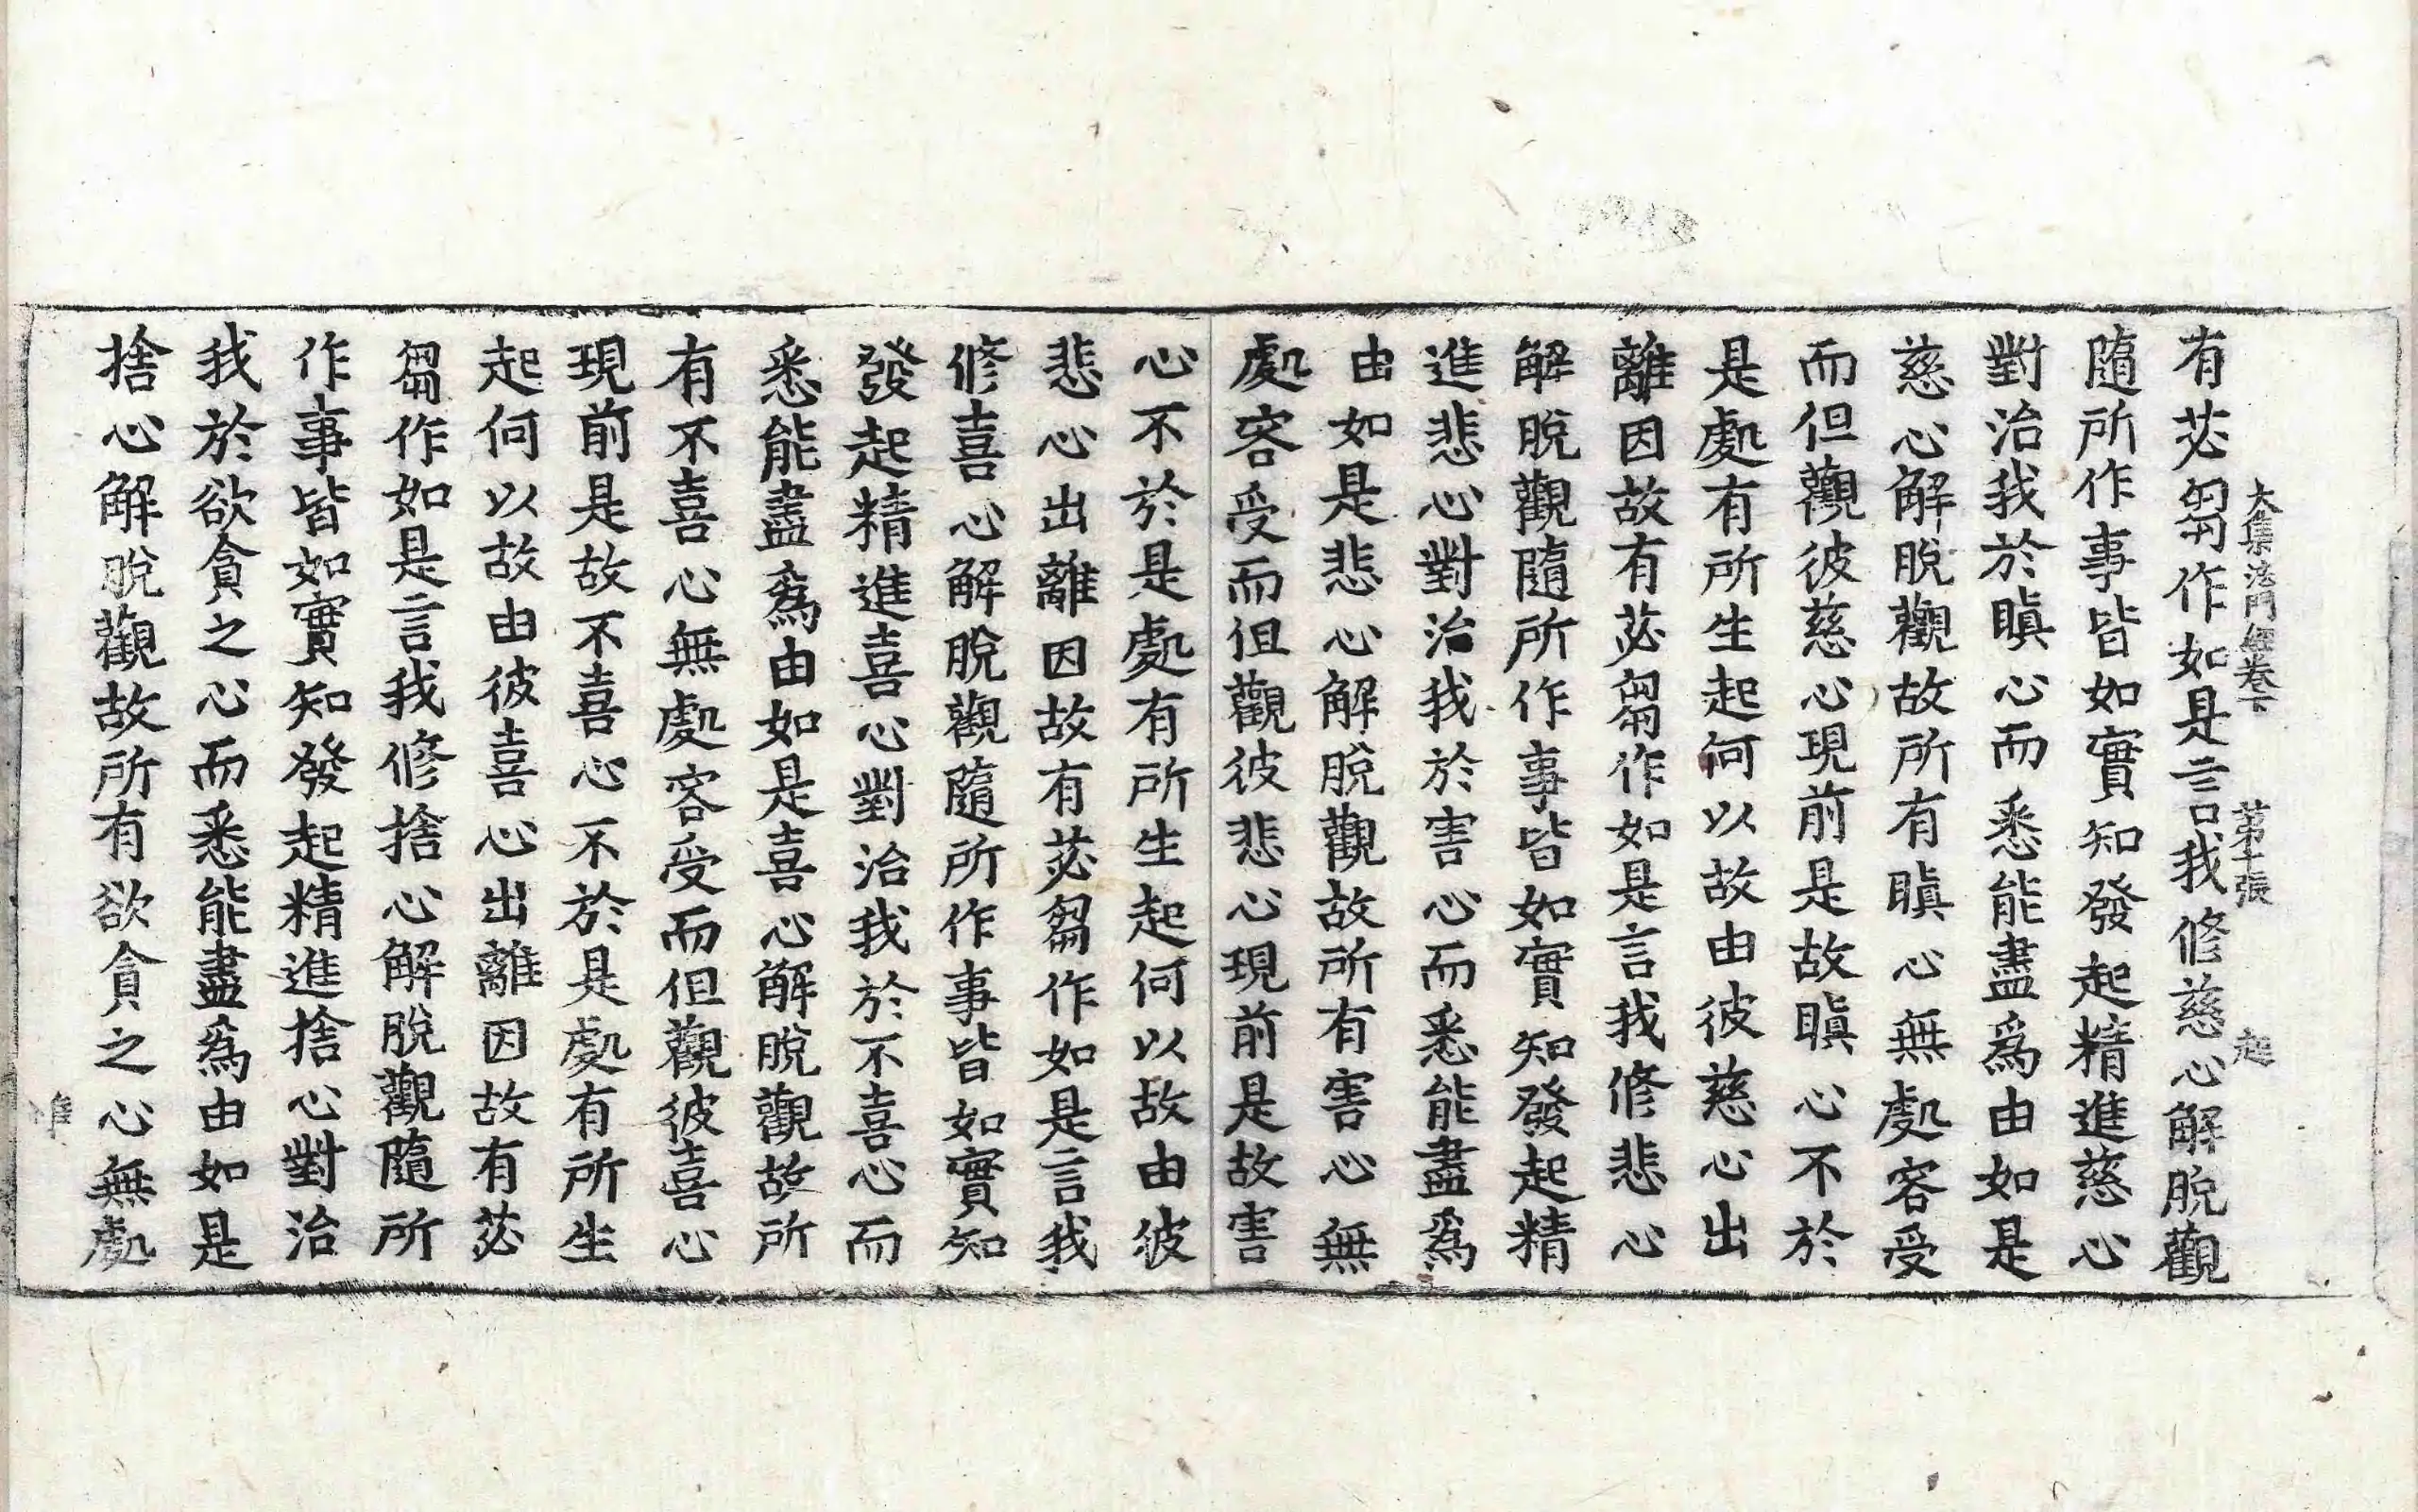 有苾芻作如是言我修慈心解脫觀
大集法門經卷下 第十張 起
隨所作事皆如實知發起精進慈心
對治我於瞋心而悉能盡為由如是
慈心解脫觀故所有瞋心無處容受
而但觀彼慈心現前是故瞋心不於
是處有所生起何以故由彼慈心出
離因故有苾芻作如是言我修悲心
解脫觀隨所作事皆如實知發起精
進悲心對治我於害心而悉能盡為
由如是悲心解脫觀故所有害心無
處容受而但觀彼悲心現前是故害
心不於是處有所生起何以故由彼
悲心出離因故有苾芻作如是言我
修喜心解脫觀隨所作事皆如實知
發起精進喜心對治我於不喜心而
悉能盡為由如是喜心解脫觀故所
有不喜心無處容受而但觀彼喜心
現前是故不喜心不於是處有所生
起何以故由彼喜心出離因故有苾
芻作如是言我修捨心解脫觀隨所
作事皆如實知發起精進捨心對治
我於欲貪之心而悉能盡為由如是
捨心解脫觀故所有欲貪之心無處